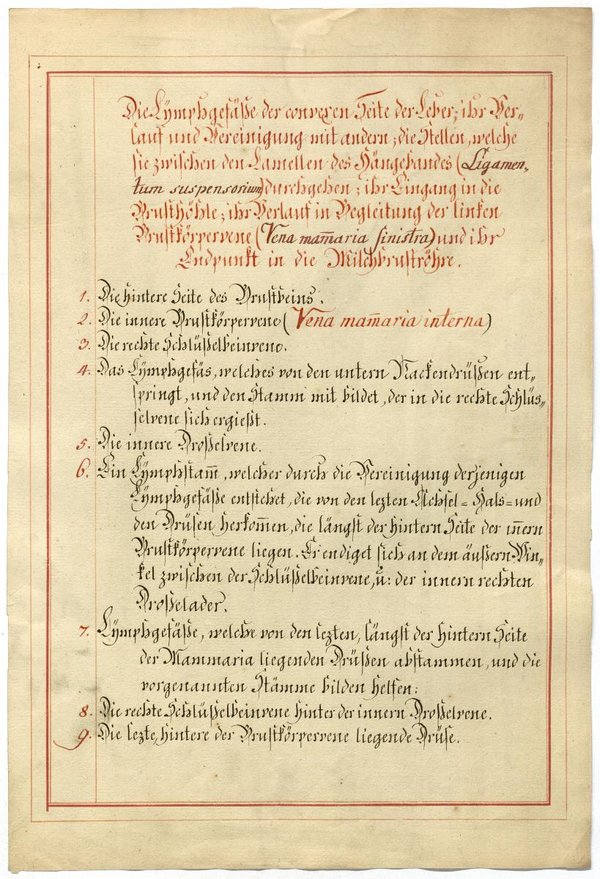 Die Lÿmphgefäße der convexen Seite der Leber; ihr Ver-
lauf und Vereinigung mit andern; die Stellen, welche
sie zwischen den Lamellen des Hängebandes (Ligamen-
tum suspensorium) durchgehen; ihr Eingang in die
Brusthöhle; ihr Verlauf in Begleitung der linken
Brustkörpervene (Vena mam̄aria sinistra) und ihr
Endpunkt in die Milchbruströhre.
1. Die hintere Seite des Brustbeins.
2. Die innere Brustkörpervene (Vena mam̄aria interna)
3. Die rechte Schlüßelbeinvene.
4. Das Lÿmphgefäs, welches von den untern Nackendrüßen ent-
springt, und den Stamm mit bildet, der in die rechte Schlüs-
selvene sich ergießt.
5. Die innere Droßelvene.
6. Ein Lÿmphstam̄, welcher durch die Vereinigung derjenigen
Lÿmphgefäße entstehet, die von den lezten Achsel- Hals- und
den Drüsen herkom̄en, die längst der hintern Seite der in̄ern
Brustkörpervene liegen. Er endiget sich an dem äußern Win-
kel zwischen der Schlüßelbeinvene, u: der innern rechten
Droßelader.
7. Lÿmphgefäße, welche von den lezten, längst der hintern Seite
der Mammaria liegenden Drüßen abstammen, und die
vorgenannten Stämme bilden helfen:
8. Die rechte Schlüßelbeinvene hinter der innern Droßelvene.
9. Die lezte, hintere der Brustkörpervene liegende Drüse.